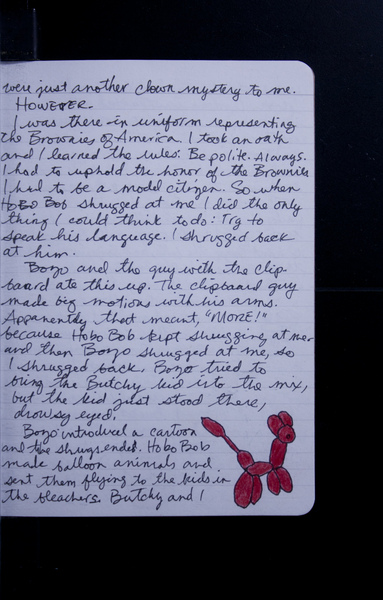 were just another clown mystery to me.
HOWEVER.
I was there in uniform representing
the Brownies of America. I took an oath
and I learned the rules: Be polite. Always.
I had to uphold the honor of the Brownies
I had to be a model citizen. So when
HoBo Bob shrugged at me I did the only
thing I could think to do: Try to
speak his language. I shrugged back
at him.
Bozo and the guy with the clip-
board ate this up. The clipboard guy
made big motions with his arms.
Apparently that meant, "MORE!"
because Hobo Bob kept shrugging at me
and then Bozo shrugged at me, so
I shrugged back. Bozo tried to
bring the Butchy kid into the mix,
but the kid just stood there,
drowsy eyed.
Bozo introduced a cartoon
and the shrugs ended. Hobo Bob
made balloon animals and
sent them flying to the kids in
the bleachers. Butchy and I